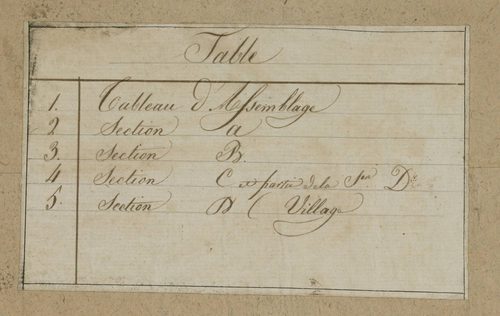 Table
1. Tableau d'Assemblage
2 Section a
3. Section B.
4 Section C et partie de la Son D.
5. Section D (Village